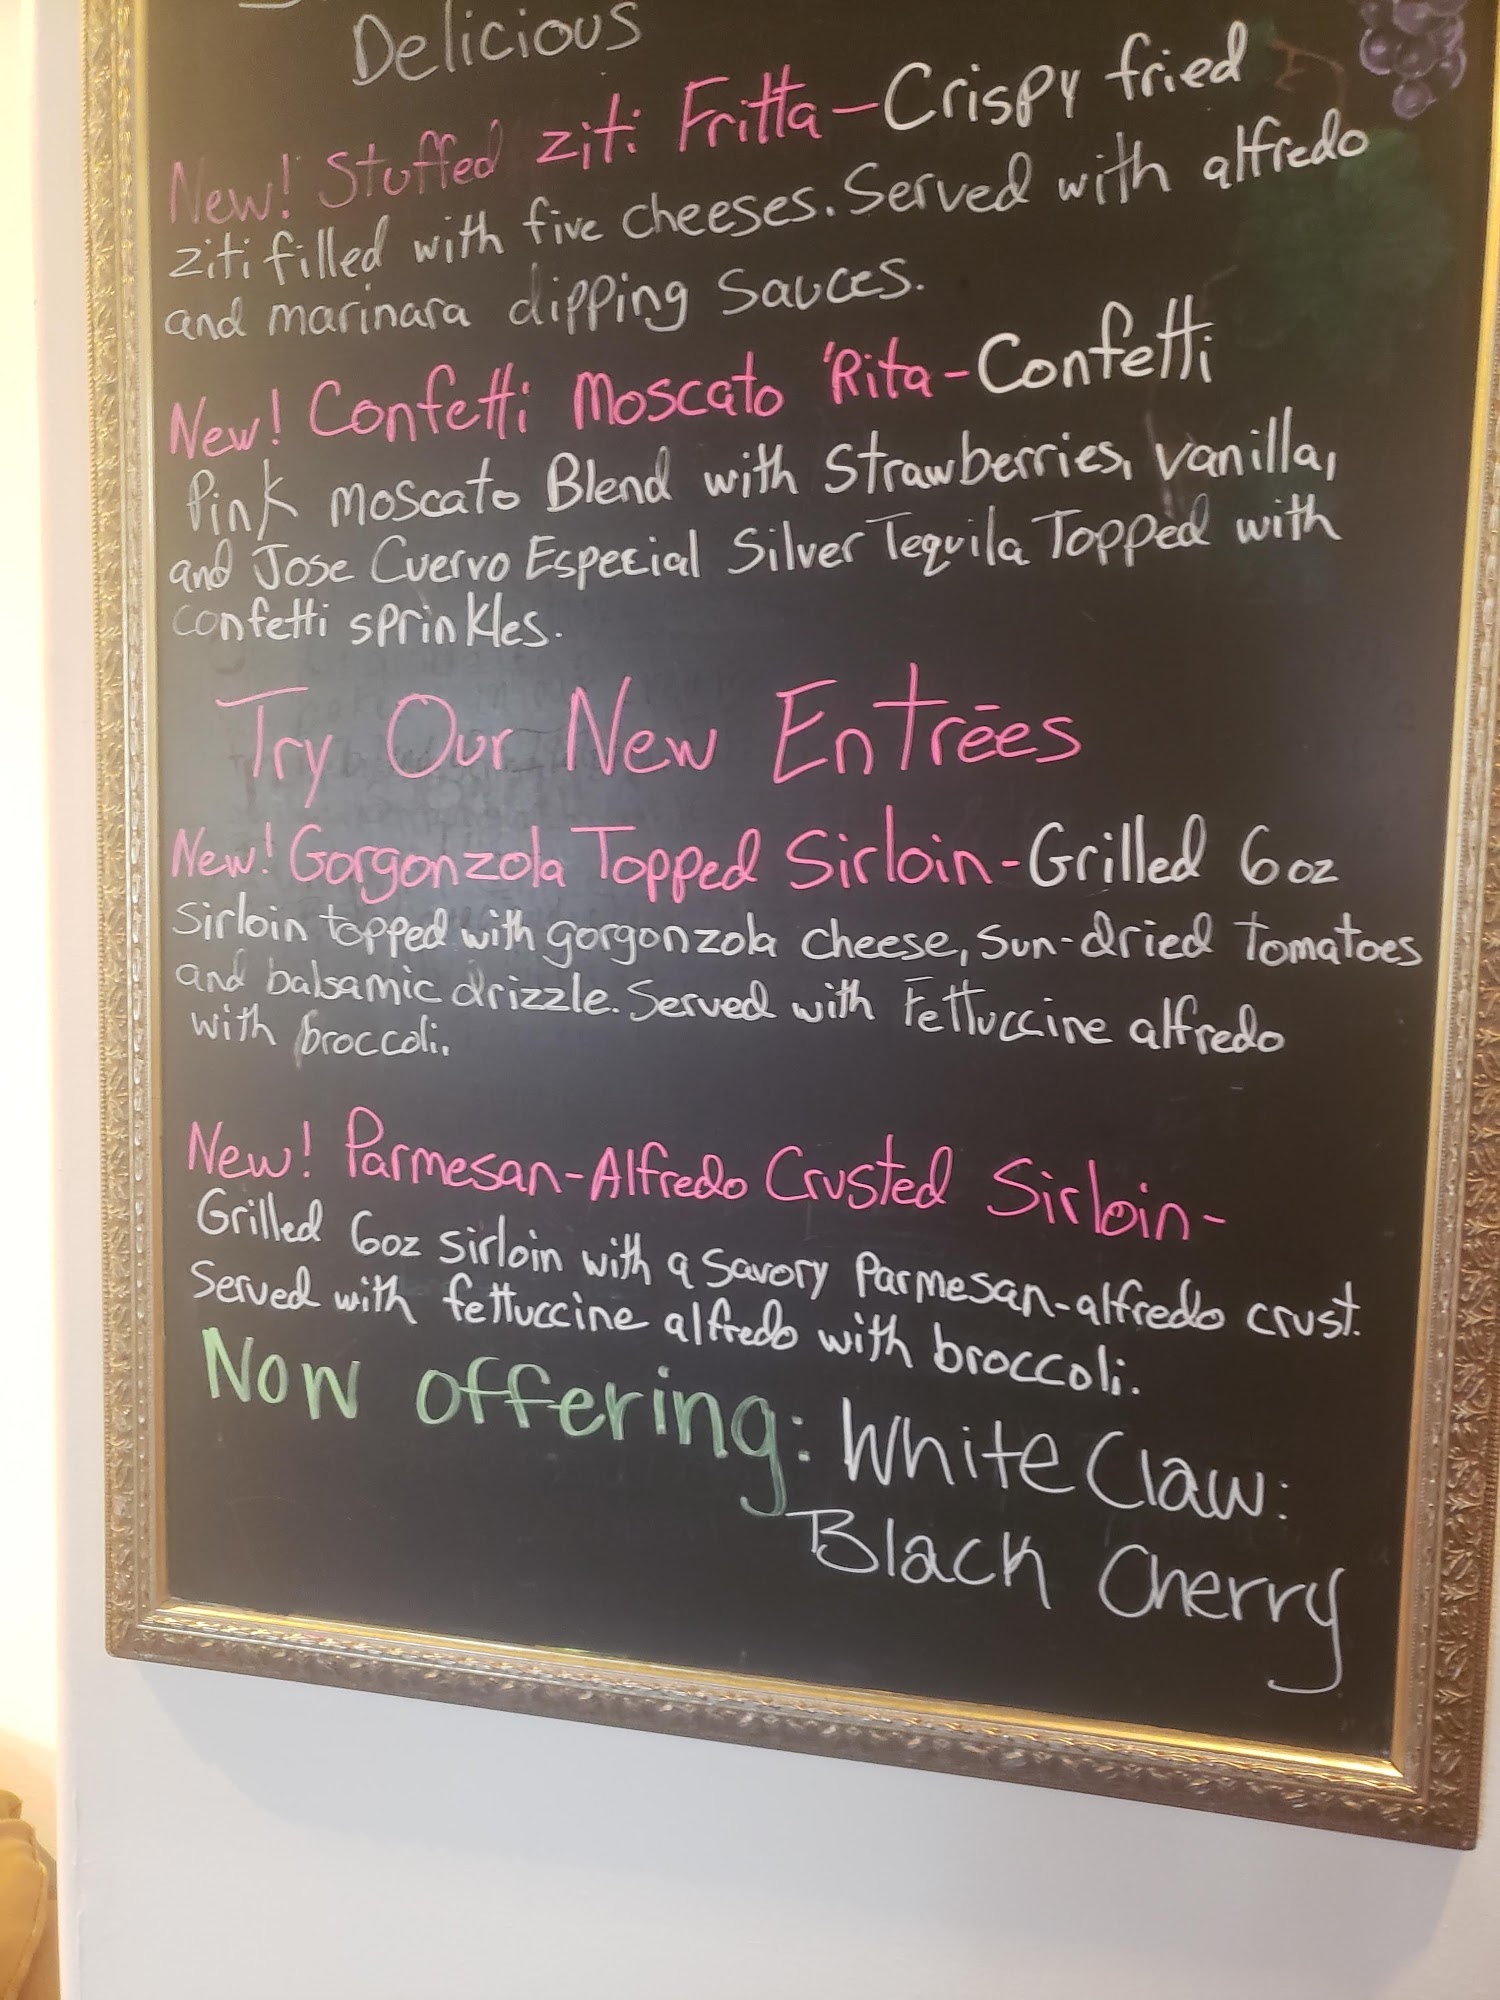 Delicious
New! Stuffed ziti Fritta - Crispy fried
ziti filled with five cheeses. Served with alfredo
and marinara dipping sauces.
New! Confetti Moscato 'Rita - Confetti
Pink Moscato Blend with Strawberries, vanilla,
and Jose Cuervo Especial Silver Tequila Topped with
confetti sprinkles.
Try Our New Entrēes
New! Gorgonzola Topped Sirloin - Grilled 6oz
sirloin topped with gorgonzola cheese, sun-dried tomatoes
and balsamic drizzle. Served with Fettuccine alfredo
with broccoli.
New! Parmesan-Alfredo Crusted Sirloin -
Grilled 6oz sirloin with a savory Parmesan-alfredo crust.
Served with fettuccine alfredo with broccoli.
Now offering: White Claw:
Black Cherry